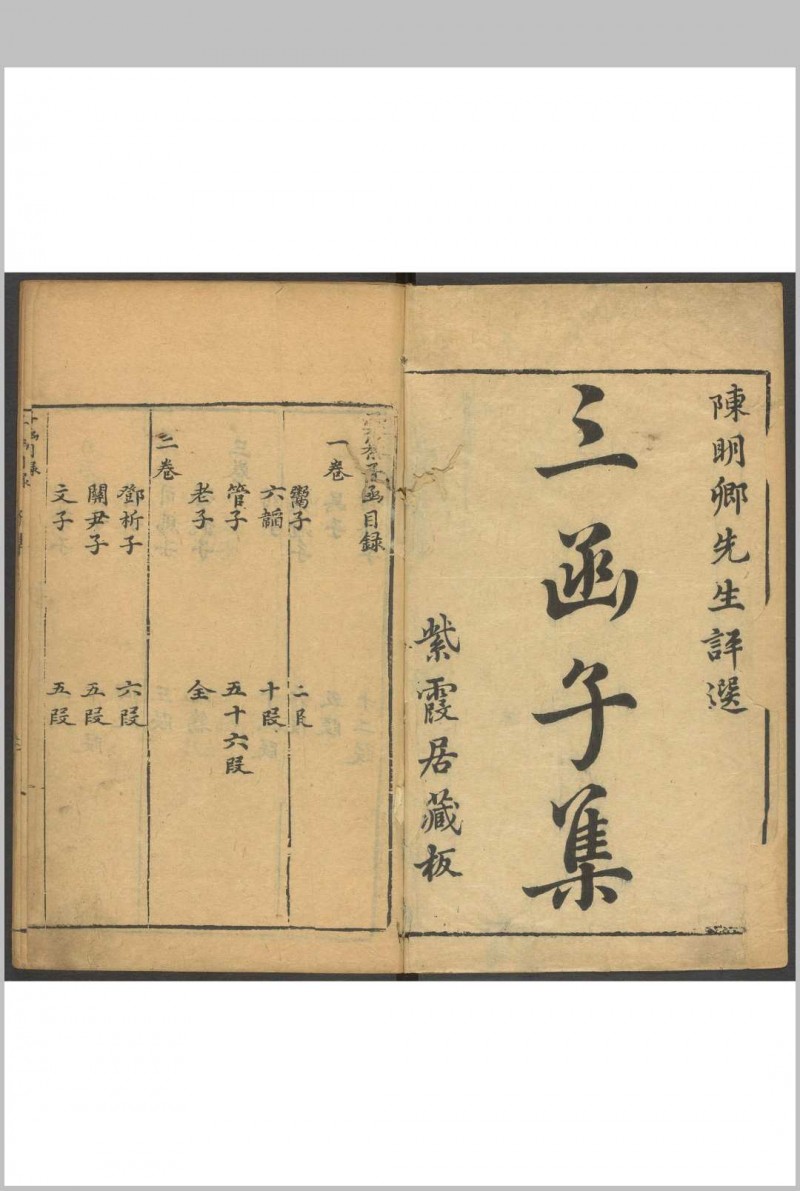 陳明卿先生評選
三函子集
紫霞居藏板
子函目録
一卷
鬻子 二段
六韜 十段
管子 五十六段
老子 全
二卷
鄧析子 六段
關尹子 五段
文子 五段